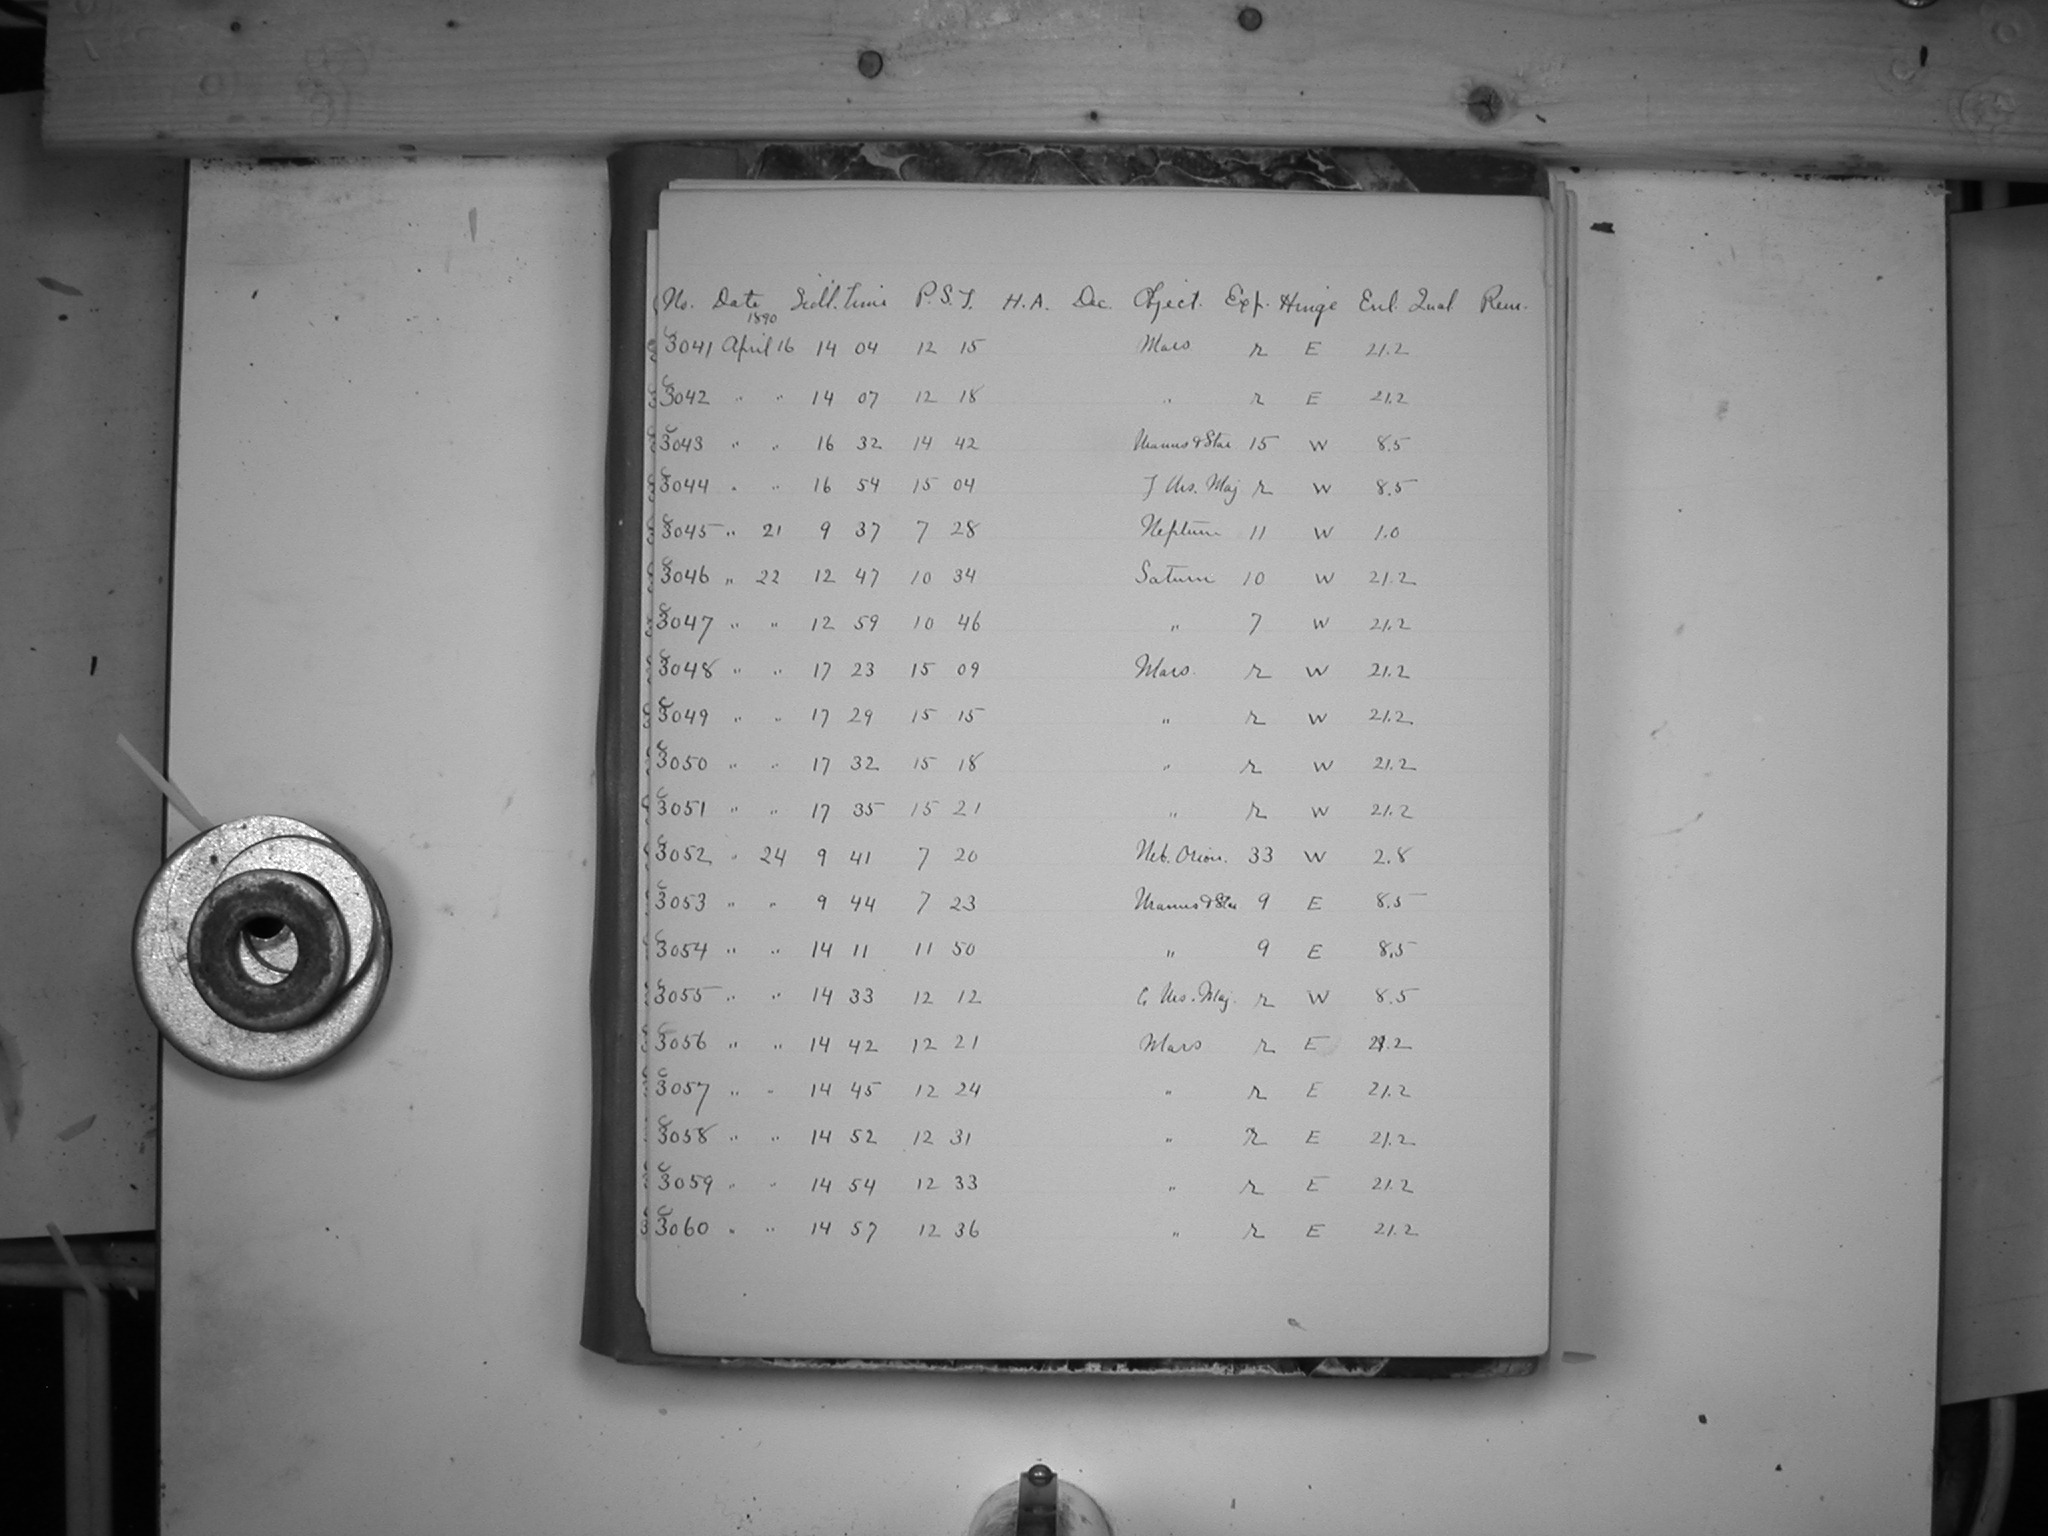 No. Date Sidl. Time P.S.T. H.A. Dec. Object. Exp. Hinge Enl. Qual. Rem.
1890
3041 April 16 14 04 12 15 Mars r E 21.2
3042 " " 14 07 12 18 " r E 21.2
3043 " " 16 32 14 42 Uranus & Star 15 W 8.5
3044 " " 16 54 15 04 Urs. Maj r W 8.5
3045 " 21 9 37 7 28 Neptune 11 W 1.0
3046 " 22 12 47 10 34 Saturn 10 W 21.2
3047 " " 12 59 10 46 " 7 W 21.2
3048 " " 17 23 15 09 Mars. r W 21.2
3049 " " 17 29 15 15 " r W 21.2
3050 " " 17 32 15 18 " r W 21.2
3051 " " 17 35 15 21 " r W 21.2
3052 " 24 9 41 7 20 Neb. Orion. 33 W 2.8
3053 " " 9 44 7 23 Uranus & Star 9 E 8.5
3054 " " 14 11 11 50 " 9 E 8.5
3055 " " 14 33 12 12 Urs. Maj. r W 8.5
3056 " " 14 42 12 21 Mars r E 21.2
3057 " " 14 45 12 24 " r E 21.2
3058 " " 14 52 12 31 " r E 21.2
3059 " " 14 54 12 33 " r E 21.2
3060 " " 14 57 12 36 " r E 21.2